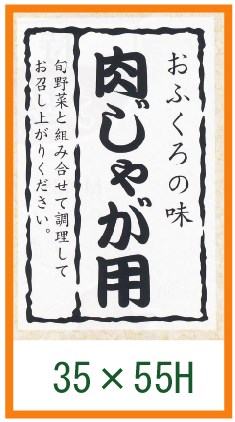 おふくろの味
肉じゃが用
旬野菜と組み合せて調理して
お召し上がりください。
35×55H